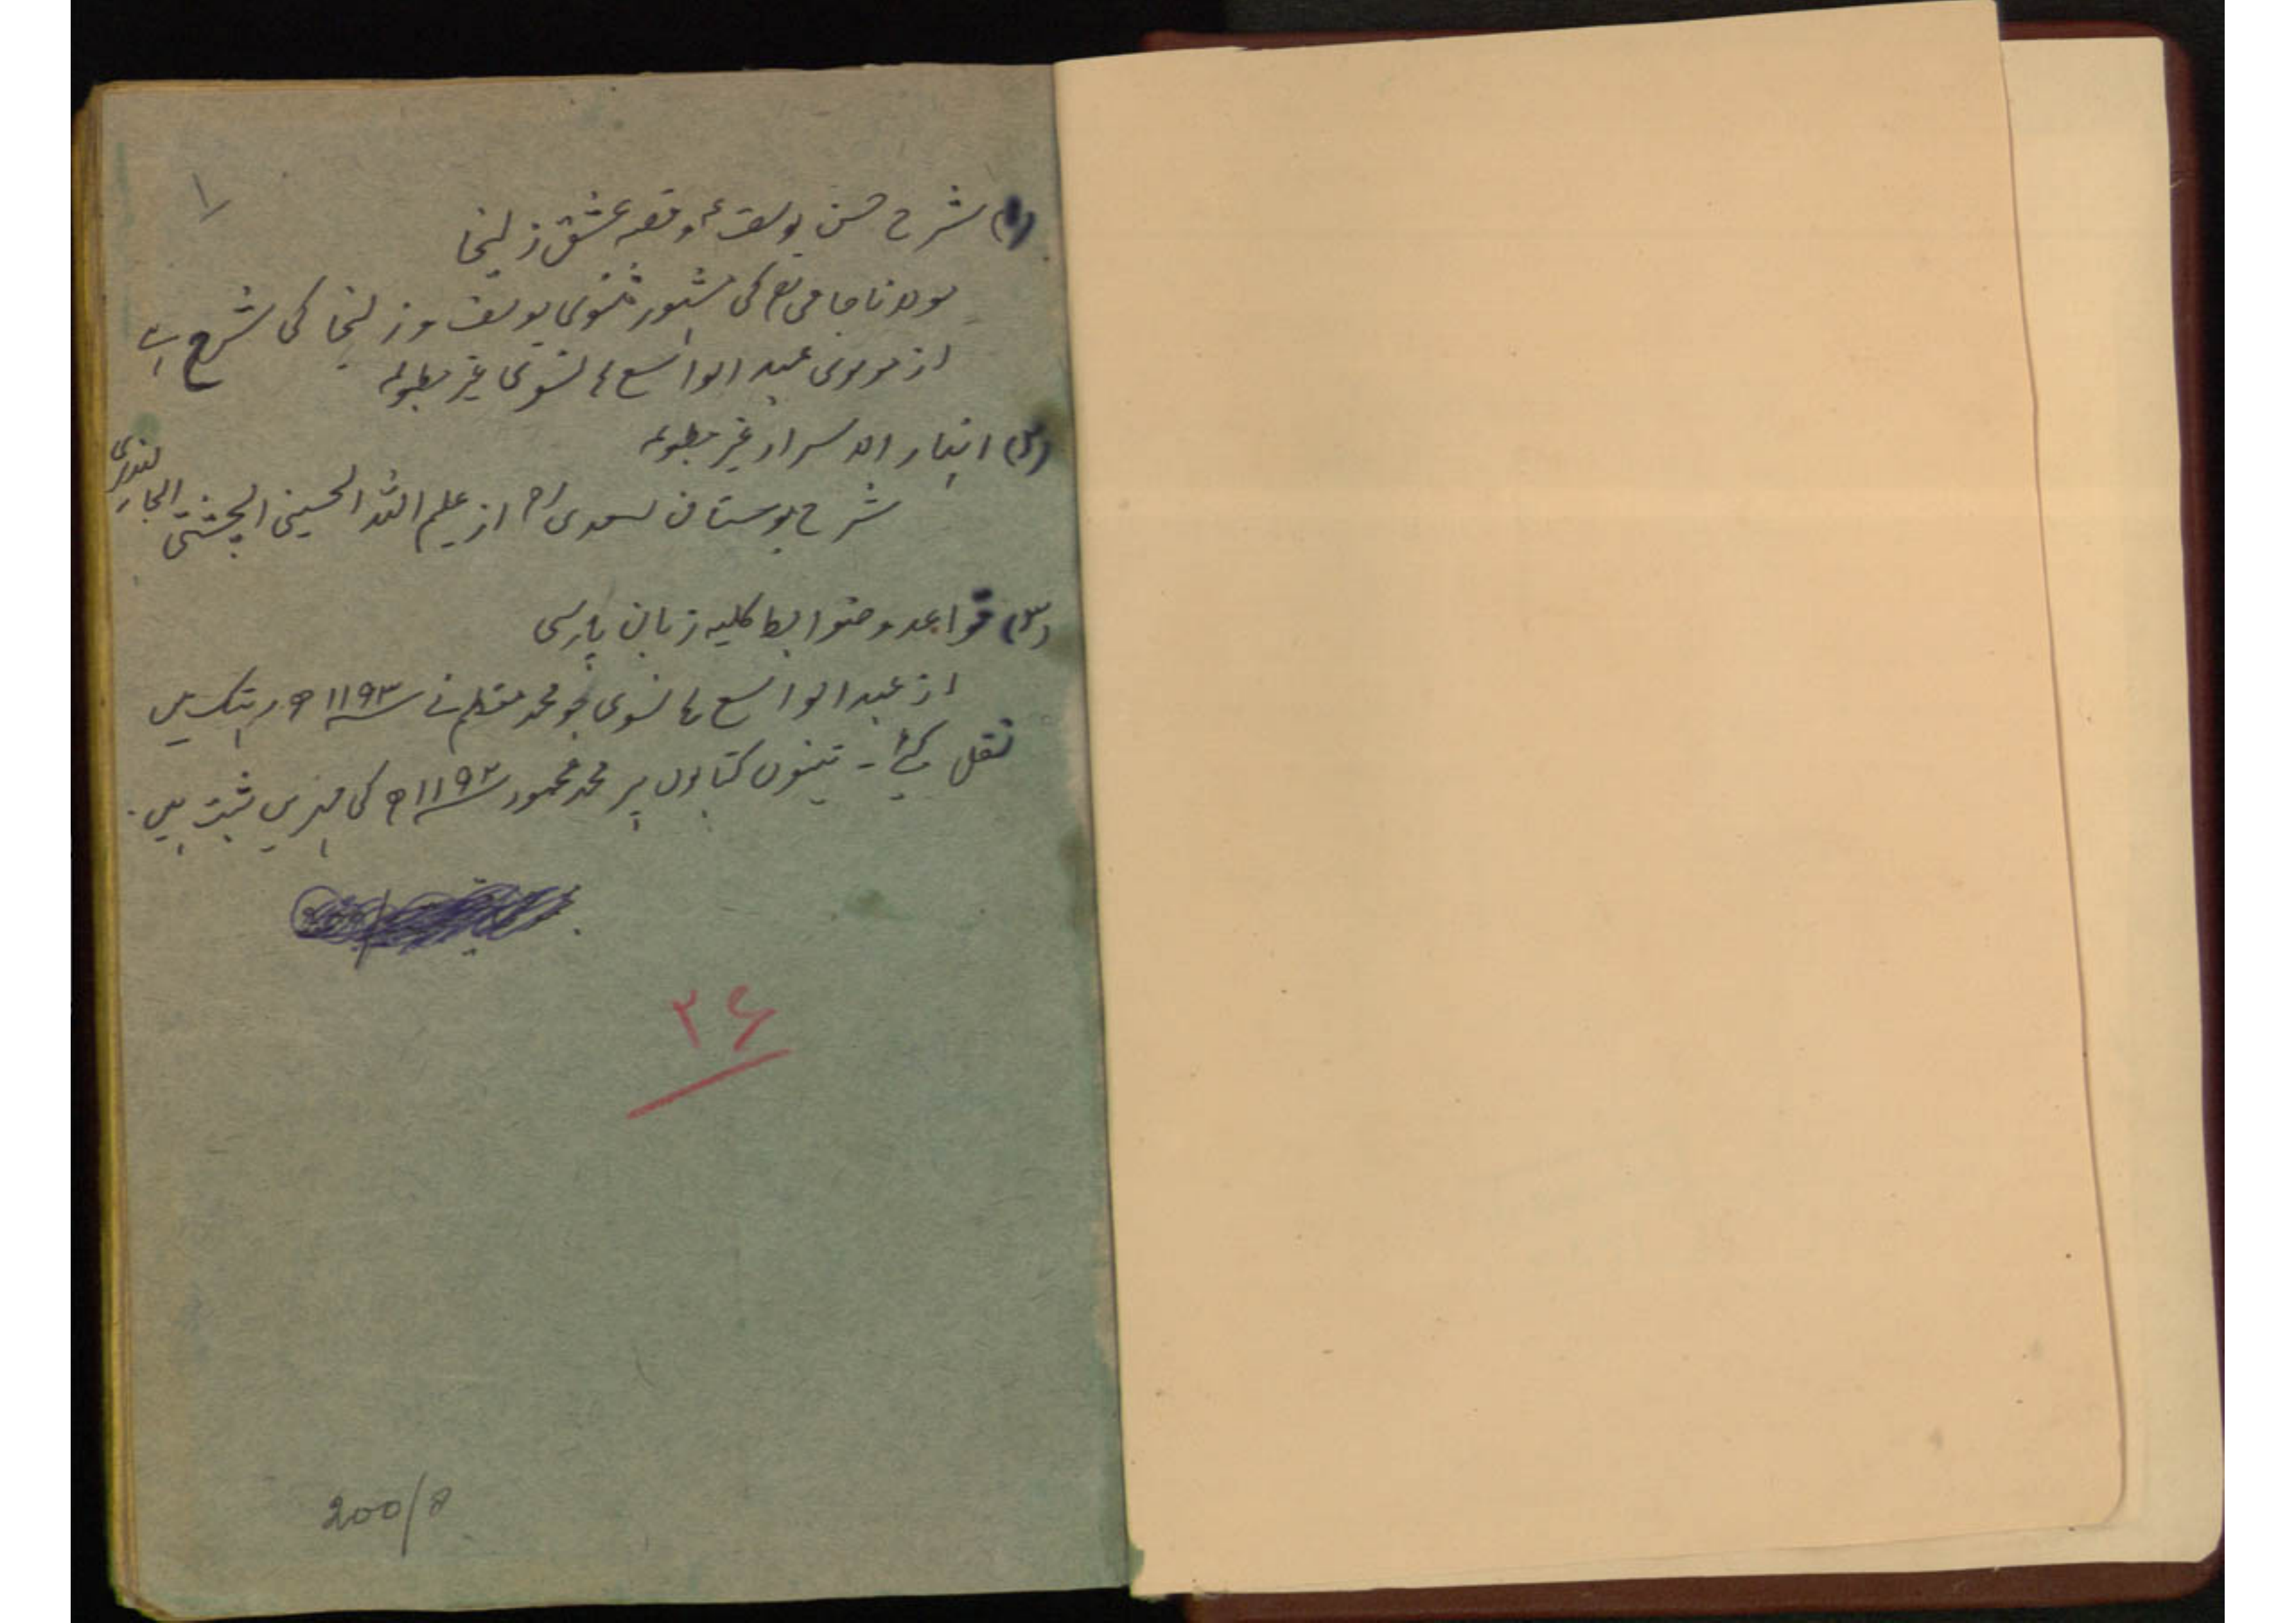 ۱
(۱) شرح حسن یوسفؑ و قصہ عشق زلیخا
مولانا جامیؒ کی مشہور مثنوی یوسف و زلیخا کی شرح ہے
از مولوی عبد الواسع ہانسوی غیر مطبوعہ
(۲) انہار الاسرار غیر مطبوعہ
شرح بوستان سعدیؒ از علیم اللہ الحسینی الچشتی الجالندری
(۳) قواعد و ضوابط کلیہ زبان پارسی
از عبد الواسع ہانسوی جو محمد معظم نے ۱۱۹۳ھ رہتک میں
نقل کئے۔ تینوں کتابوں پر محمد محمود ۱۱۹۲ھ کی مہریں ثبت ہیں۔
۳۶
200/8